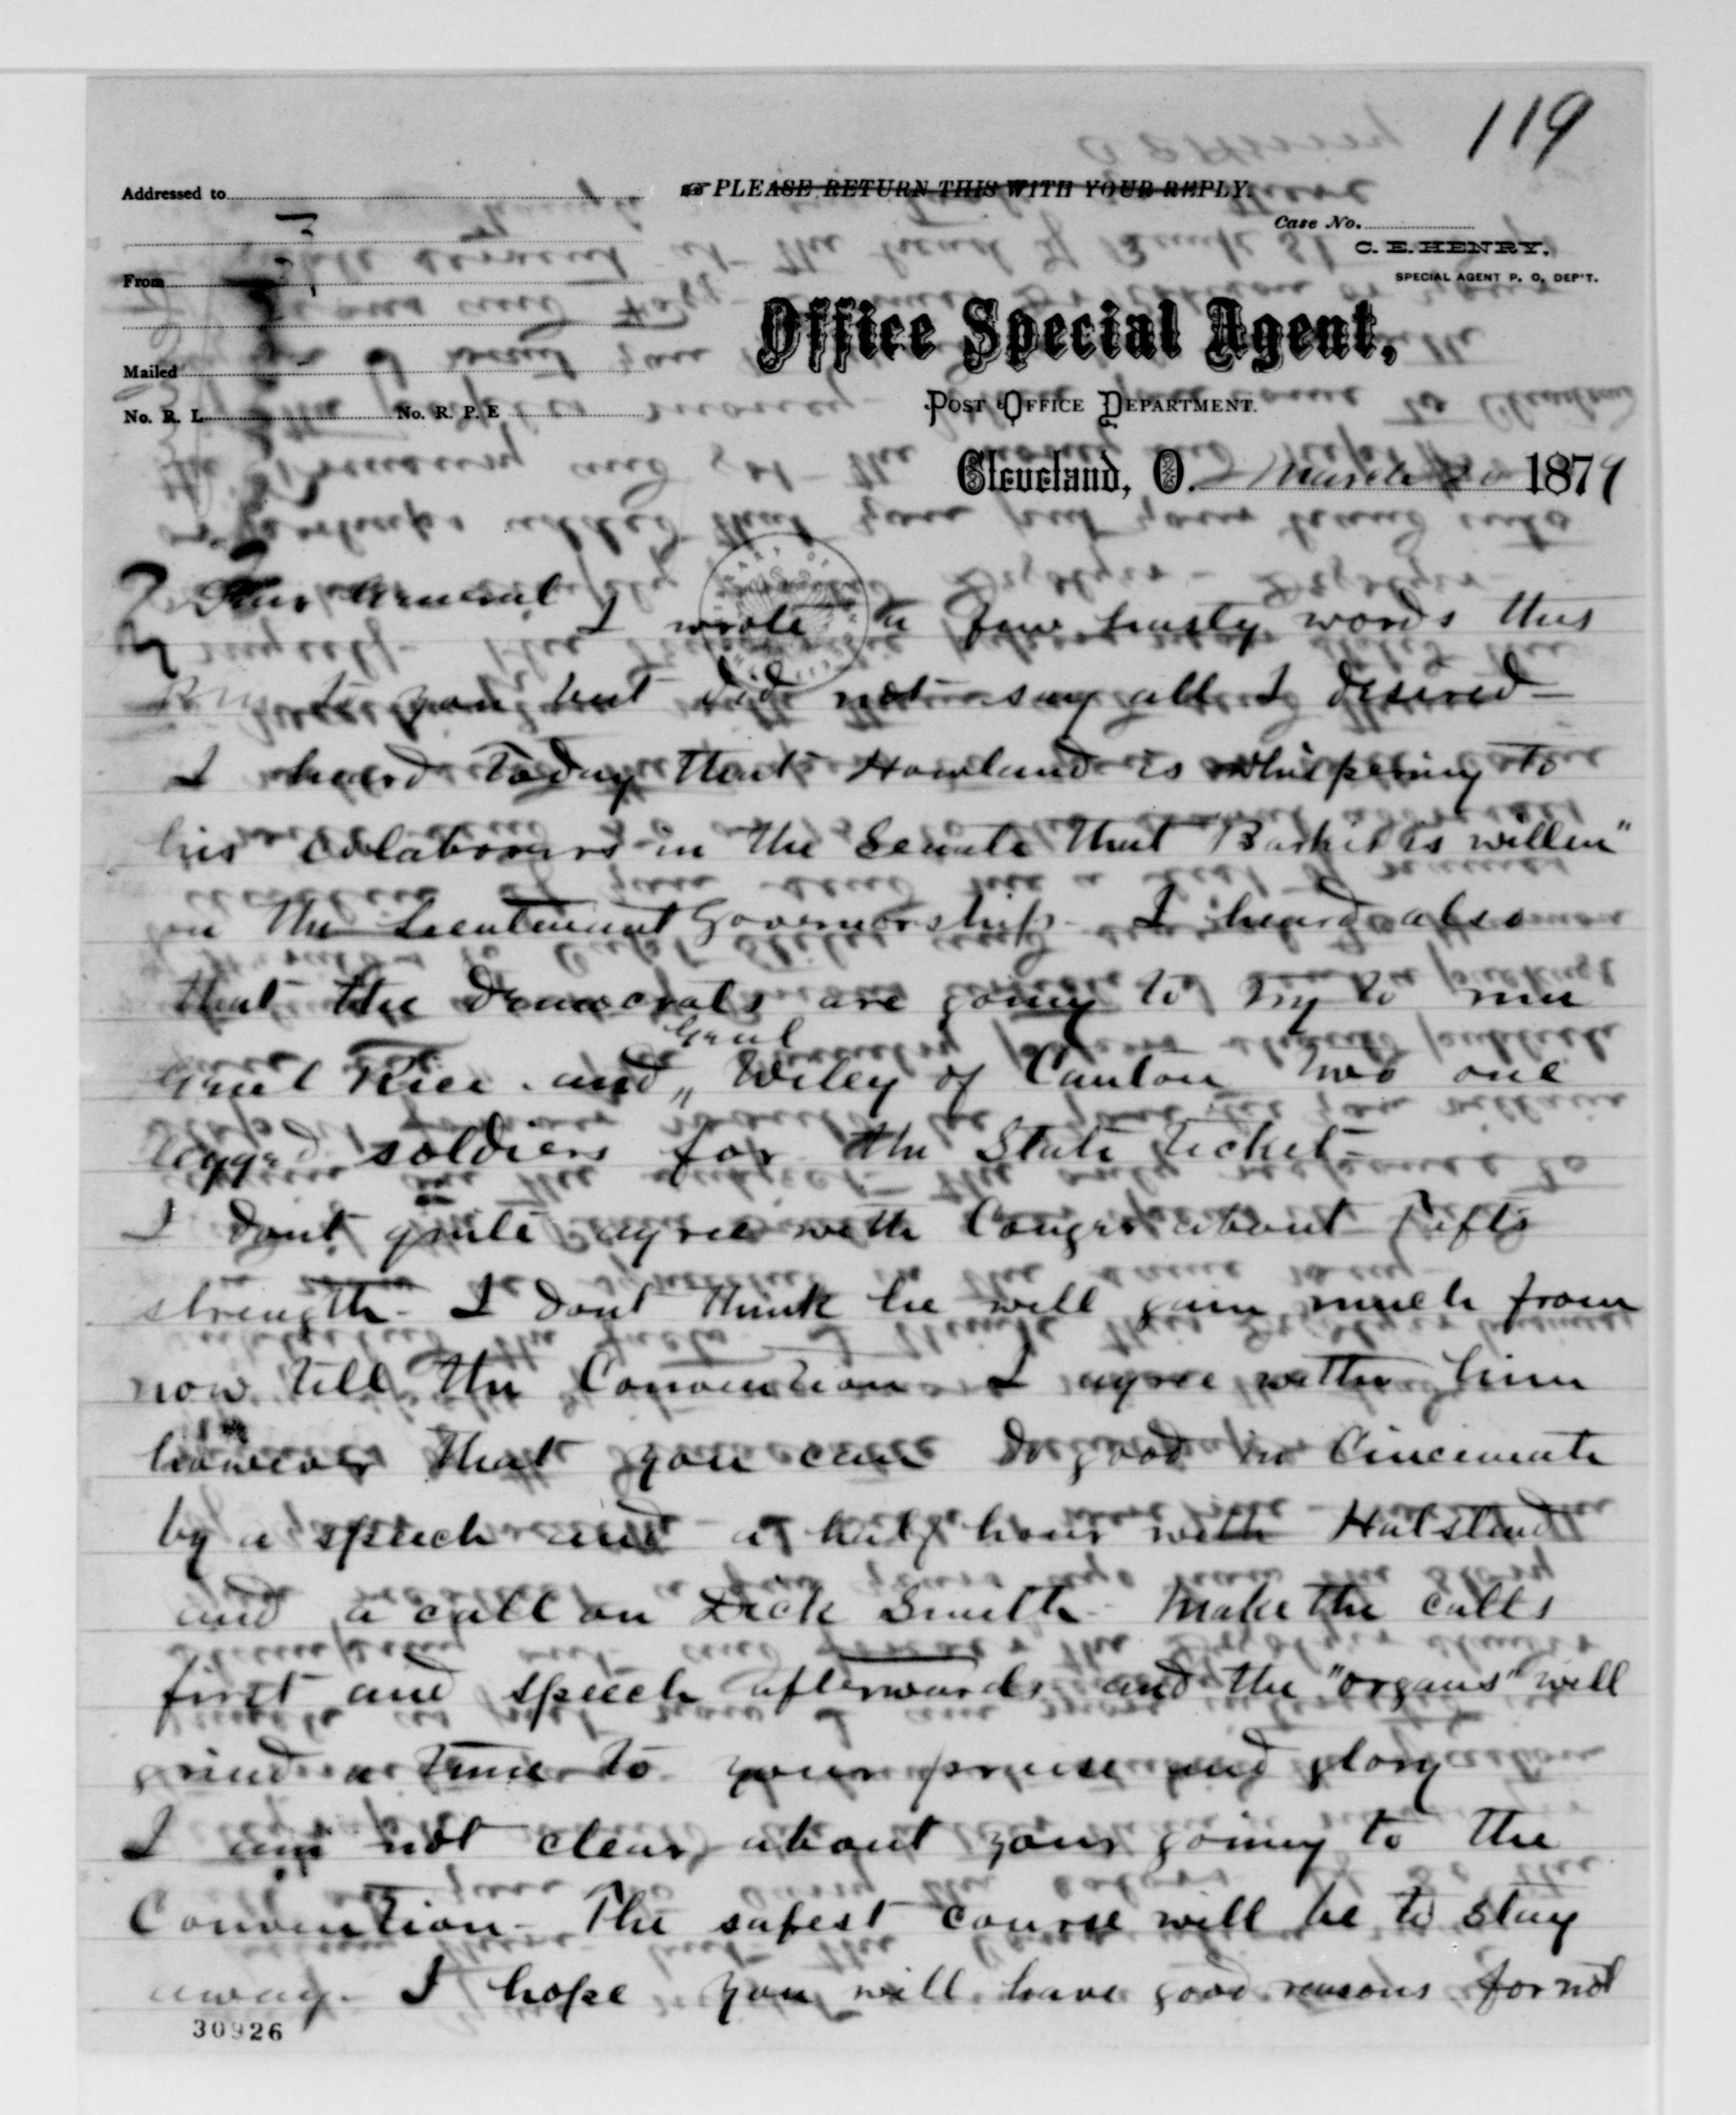 119
Addressed to
☞ PLEASE RETURN THIS WITH YOUR REPLY.
Case No.
C. E. HENRY,
From
SPECIAL AGENT P. O. DEP'T.
Office Special Agent,
Mailed
POST OFFICE DEPARTMENT.
No. R. L. No. R. P. E
Cleveland, O. March 20 1879
Dear General
I wrote a few hasty words this
to you but did not say all I desired
I heard today that Howland is whispering to
his colaborers in the Senate that "Barkis is willen"
on the Lieutenant Governorship. I heard also
that the Democrats are going to try to run
Genl
Genl Rice and " Wiley of Canton two one
legged soldiers for the State ticket-
I dont quite agree with Conger about Tafts
strength. I dont think he will gain much from
now till the Convention I agree with him
however that you can do good in Cincinnati
by a speech and a half hour with Halstead
and a call on Dick Smith. Make the calls
first and speech afterwards and the "organs" will
grind a tune to your praise and glory
I am not clear about your going to the
Convention- The safest course will be to stay
away. I hope you will have good reasons for not
30926